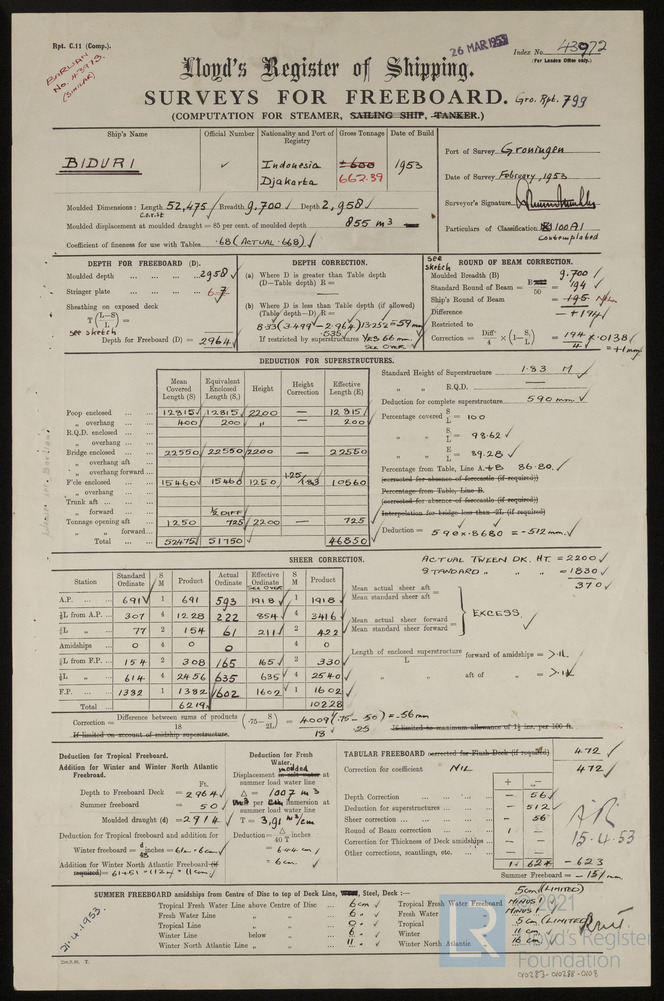 Rpt. C.11 (Comp.).
26 MAR 1953
Index No. 43972
(For London Office only.)
BARLIAN
No. 43973.
(SIMILAR)
Lloyd's Register of Shipping.
SURVEYS FOR FREEBOARD. Gro. Rpt. 799
(COMPUTATION FOR STEAMER, SAILING SHIP, TANKER.)
Ship's Name Official Number Nationality and Port of Registry Gross Tonnage Date of Build
BIDURI ✓ Indonesia ± 600 1953
Djakarta 662.39
Port of Survey Groningen
Date of Survey February, 1953
Surveyor's Signature
Particulars of Classification 100A1
contemplated
Moulded Dimensions: Length 52,475 Breadth 9.700 Depth 2,958
Moulded displacement at moulded draught = 85 per cent. of moulded depth 855 m3
Coefficient of fineness for use with Tables .68 (ACTUAL .668)
DEPTH FOR FREEBOARD (D).
Moulded depth 2958
Stringer plate 6.7
Sheathing on exposed deck
T (L-S/L) =
see sketch
Depth for Freeboard (D) = 2964
DEPTH CORRECTION.
(a) Where D is greater than Table depth
(D—Table depth) R =
(b) Where D is less than Table depth (if allowed)
(Table depth—D) R =
8.33 (3.499 - 2.964) 13.252 = 59 mm
.535
If restricted by superstructures YES 66 mm.
SEE OVER
see sketch
ROUND OF BEAM CORRECTION.
Moulded Breadth (B) 9.700
Standard Round of Beam = B/50 = 194
Ship's Round of Beam = 195
Difference = +194
Restricted to
Correction = Diff/4 × (1-S/L) = 194/4 × .0138
= +1 mm
DEDUCTION FOR SUPERSTRUCTURES.
Mean Covered Length (S) Equivalent Enclosed Length (S₁) Height Height Correction Effective Length (E)
Poop enclosed 12815 12815 2200 — 12815
„ overhang 400 200 „ 200
R.Q.D. enclosed
„ overhang
Bridge enclosed 22550 22550 2200 — 22550
„ overhang aft
„ overhang forward
F'cle enclosed 15460 15460 1250 1.25/1.83 10560
„ overhang
Trunk aft
„ forward ½ DIFF
Tonnage opening aft 1250 725 2200 — 725
„ „ forward
Total 52475 51750 46850
Standard Height of Superstructure 1.83 M
„ „ R.Q.D. —
Deduction for complete superstructure 590 mm.
Percentage covered S/L = 100
„ „ S₁/L = 98.62
„ „ E/L = 89.28
Percentage from Table, Line A. & B 86.80.
(corrected for absence of forecastle (if required))
Percentage from Table, Line B.
(corrected for absence of forecastle (if required))
Interpolation for bridge less than .2L (if required)
Deduction = 590 × .8680 = -512 mm.
SHEER CORRECTION.
ACTUAL TWEEN DK. HT. = 2200
STANDARD „ „ = 1830
370
Station Standard Ordinate S M Product Actual Ordinate Effective Ordinate SEE OVER S M Product
A.P. 691 1 691 593 1918 1 1918
⅙L from A.P. 307 4 1228 222 854 4 3416
⅓L „ 77 2 154 61 211 2 422
Amidships 0 4 0 0 4 0
⅓L from F.P. 154 2 308 165 165 2 330
⅙L „ 614 4 2456 635 635 4 2540
F.P. 1382 1 1382 1602 1602 1 1602
Total 6219 10228
Mean actual sheer aft
Mean standard sheer aft =
Mean actual sheer forward
Mean standard sheer forward =
EXCESS
Length of enclosed superstructure / L forward of amidships = >.1L
„ „ aft of „ = >.1L
Correction = Difference between sums of products / 18 (.75-S/2L) = 4009/18 (.75 - .50) = .56 mm
.25
If limited on account of midship superstructure.
If limited to maximum allowance of 1½ ins. per 100 ft.
Deduction for Tropical Freeboard.
Addition for Winter and Winter North Atlantic Freeboard.
Ft.
Depth to Freeboard Deck = 2964
Summer freeboard = 50
Moulded draught (d) = 2914
Deduction for Tropical freeboard and addition for
Winter freeboard = d/48 inches = 61 = 6cm
Addition for Winter North Atlantic Freeboard (if required) = 61+51 = 112 = 11cm
Deduction for Fresh Water.
Displacement moulded in salt water at summer load water line
Δ = 1007 m3
per immersion at summer load water line
T = 3,91 m3/cm
Deduction = Δ/40 T inches
= 6.44 cm
= 6cm.
TABULAR FREEBOARD corrected for Flush Deck (if required) 472
Correction for coefficient NIL 472
+ −
Depth Correction — 56
Deduction for superstructures — 512
Sheer correction — 56
Round of Beam correction 1 —
Correction for Thickness of Deck amidships — —
Other corrections, scantlings, etc. — —
1 624 - 623
Summer Freeboard = - 151 mm
15.4.53
SUMMER FREEBOARD amidships from Centre of Disc to top of Deck Line, Wood, Steel, Deck :— 5cm (LIMITED)
Tropical Fresh Water Line above Centre of Disc 6 cm Tropical Fresh Water Freeboard MINUS 1
Fresh Water Line „ „ 6 „ Fresh Water „ MINUS 1
Tropical Line „ „ 0 „ Tropical „ 5 cm (LIMITED)
Winter Line below „ 6 „ Winter „ 11 cm
Winter North Atlantic Line „ „ 11 „ Winter North Atlantic „ 16 cm
21.4.1953.
2021
Lloyd's Register
Foundation
010283-010288-0108